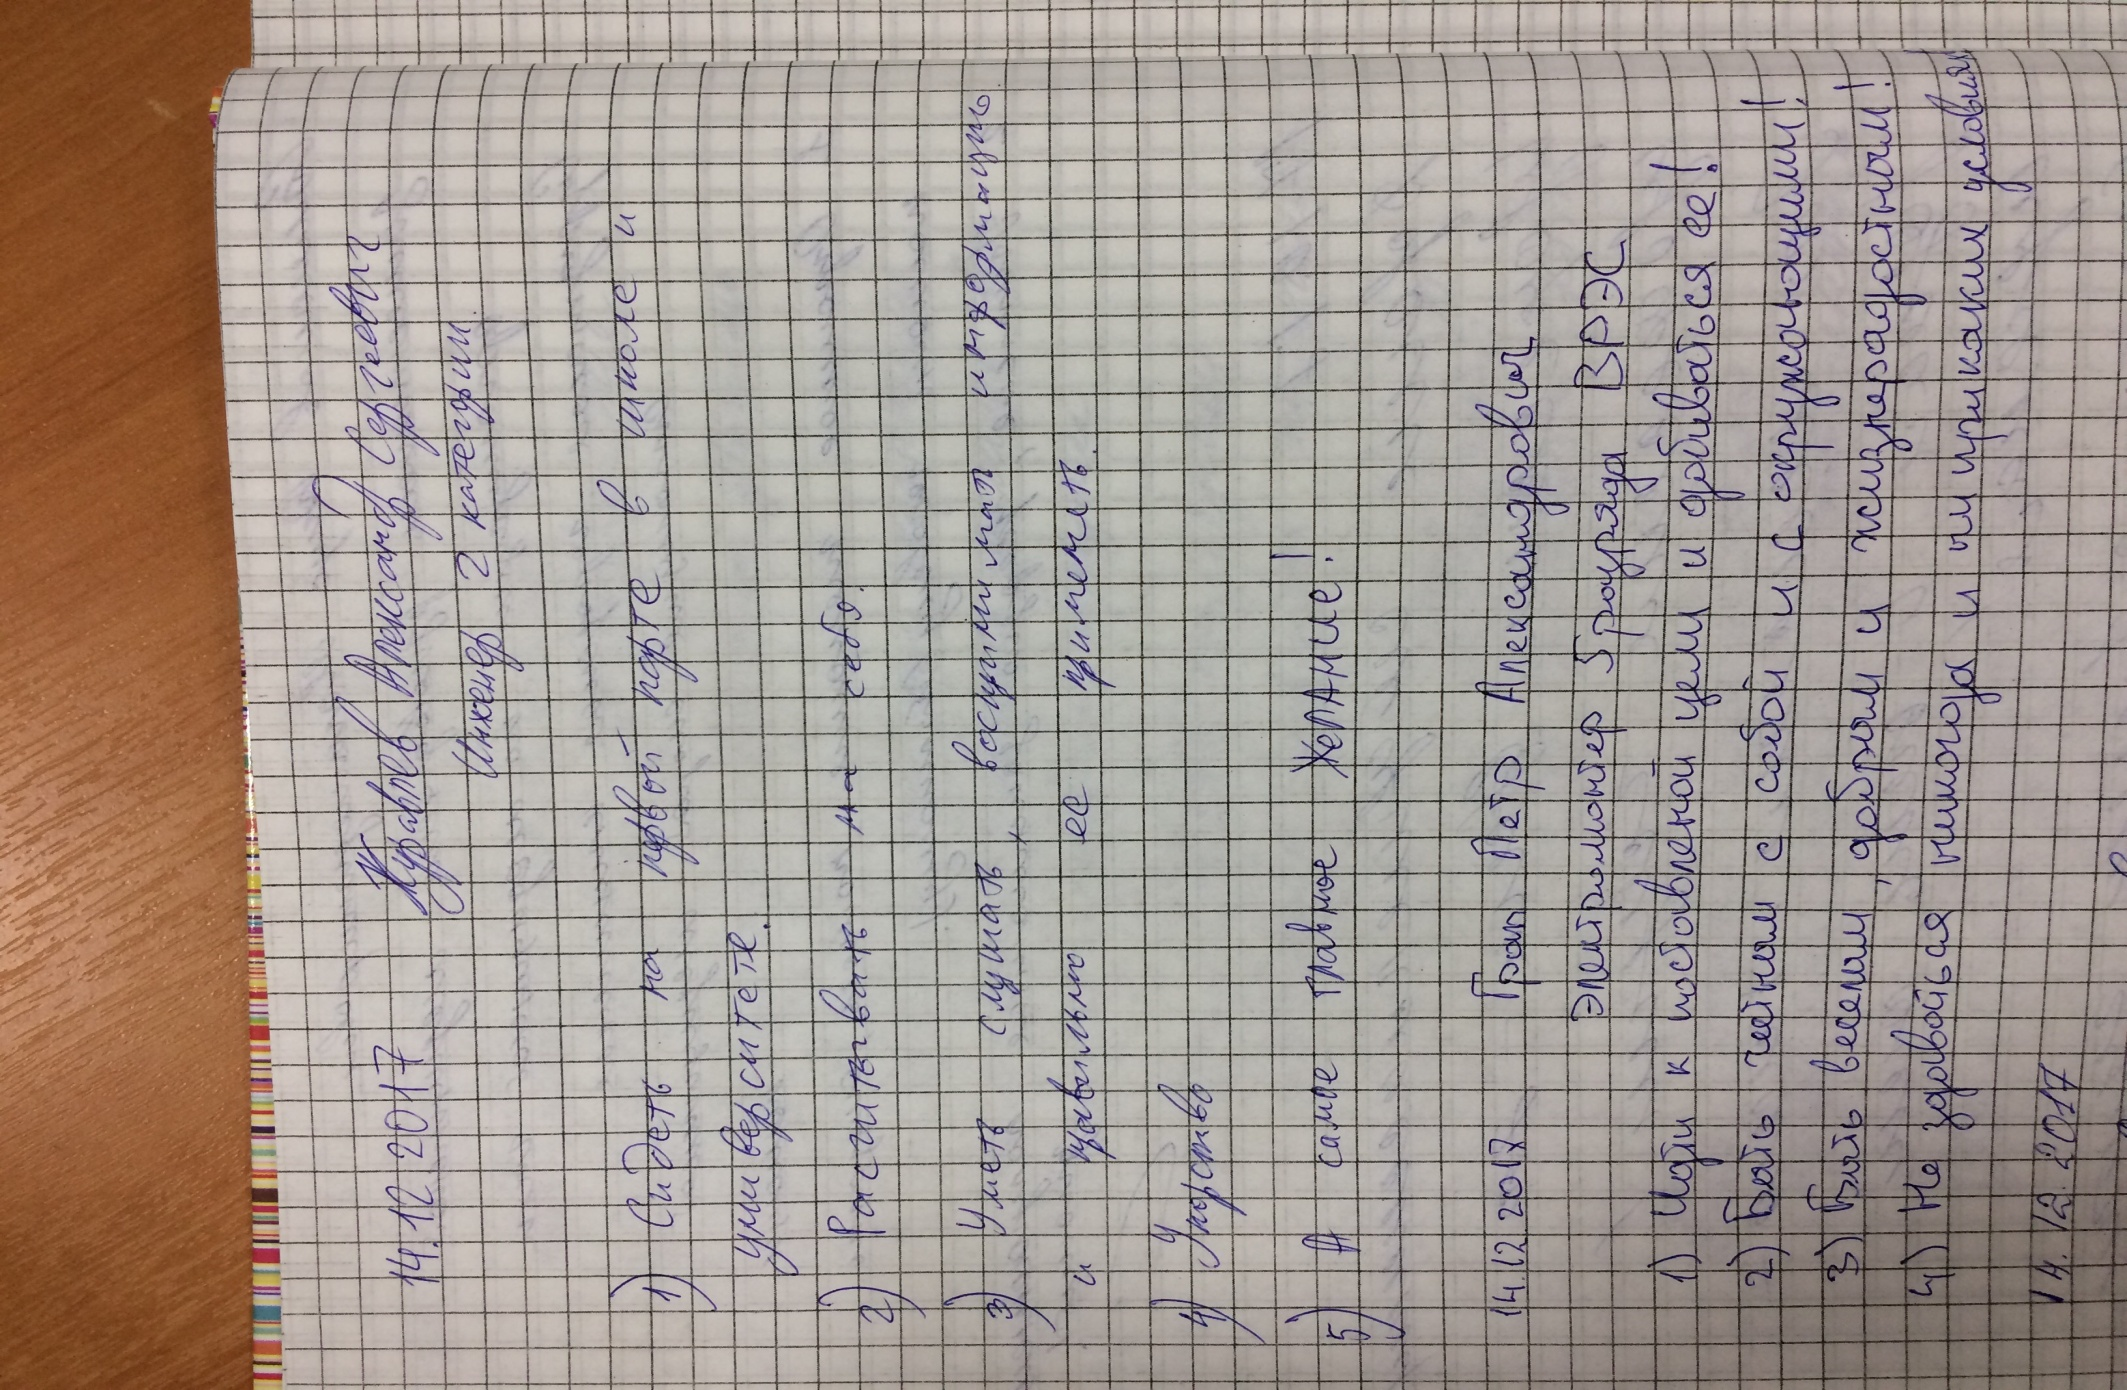 14.12.2017 Журавлев Александр Сергеевич
Инженер 2 категории.
1) Сидеть на первой парте в школе и
университете.
2) Расчитывать на себя.
3) Уметь слушать, воспринимать информацию
и правильно ее применять.
4) Упорство
5) А самое главное Желание!
14.12.2017 Грап Петр Александрович
электромонтер 5 разряда ВРЭС
1) Идти к поставленой цели и добиваться ее!
2) Быть честным с собой и с окружающими!
3) Быть веселым, добрым и жизнерадостным!
4) Не здаваться никогда и ни при каких условиях
14.12.2017